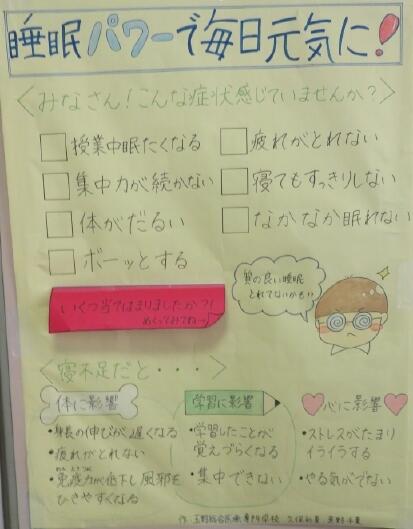 睡眠パワーで毎日元気に!
〈みなさん!こんな症状感じていませんか?〉
授業中眠たくなる
集中力が続かない
体がだるい
ボーッとする
疲れがとれない
寝てもすっきりしない
なかなか眠れない
いくつ当てはまりましたか?!
めくってみてね→
質の良い睡眠
とれてないかも!?
〈寝不足だと・・・〉
体に影響
・身長の伸びが遅くなる
・疲れがとれない
・免疫力が低下し風邪を
ひきやすくなる
学習に影響
・学習したことが
覚えづらくなる
・集中できない
心に影響
・ストレスがたまり
イライラする
・やる気がでない
作:玉野総合医療専門学校